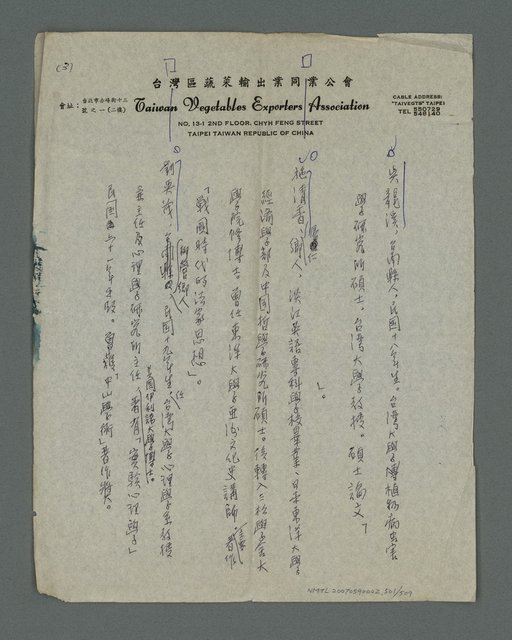 (3)
台灣區蔬菜輸出業同業公會
會址：台北市赤峰街十三號之一(二樓)
Taiwan Vegetables Exporters Association
NO. 13-1 2ND FLOOR. CHYH FENG STREET
TAIPEI TAIWAN REPUBLIC OF CHINA
CABLE ADDRESS:
"TAIVEGTS" TAIPEI
TEL 550729
548140
吳龍溪，台南縣人。民國十八年生。台灣大學植物病虫害
學研究所碩士。台灣大學教授。碩士論文「
」。
施清香，鄉人，淡江英語專科學校畢業，日本東洋大學
經濟學部及中国哲學研究所碩士。後轉入二松學舍大
學院修博士。曾任東洋大學亞洲文化史講師。著作
「戰國時代的法家思想」。
劉英茂，台南縣柳營鄉人，民國十九年生，台灣大學心理學系教授
兼主任及心理學研究所主任，著有「實驗心理學」
美國伊利諾大學博士。
民國六十一年 曾獲「中山學術」著作獎。
NMTL 20070590002, 501/509